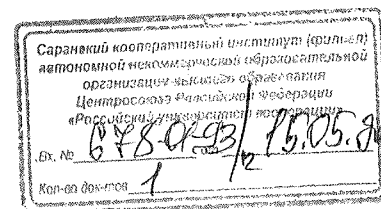 Саранский кооперативный институт (филиал)
автономной некоммерческой образовательной
организации высшего образования
Центросоюза Российской Федерации
«Российский университет кооперации»
Вх. № 678-01-93/12 15.05.
Кол-во док-тов 1